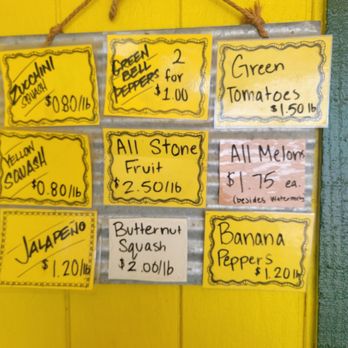 ZUCCHINI
SQUASH
$0.80/lb
GREEN
BELL
PEPPERS
2
for
$1.00
Green
Tomatoes
$1.50 lb
YELLOW
SQUASH
$0.80/lb
All Stone
Fruit
$2.50/lb
All Melons
$1.75 ea.
(besides Watermelon
JALAPEÑO
$1.20/lb
Butternut
Squash
$2.00/lb
Banana
Peppers
$1.20 lb